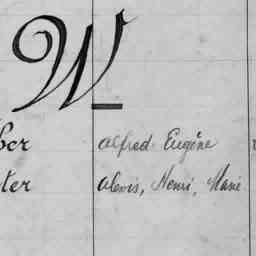 W
ber alfred Eugène
ter alexis, Henri, Marie